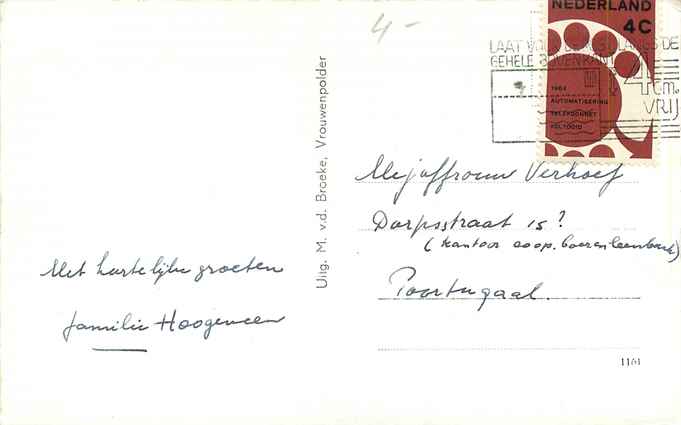 4-
NEDERLAND
4C
LAAT VOOR POST LANGS DE
GEHELE BOVENKANT
4 c.m.
VRIJ
1962
AUTOMATISERING
TELEFOONNET
VOLTOOID
Uitg. M. v.d. Broeke, Vrouwenpolder
Mejuffrouw Verhoef
Dorpsstraat 15?
(kantoor coop. boerenleenbank)
Poortugaal.
Met hartelijke groeten
familie Hoogeveen
1161